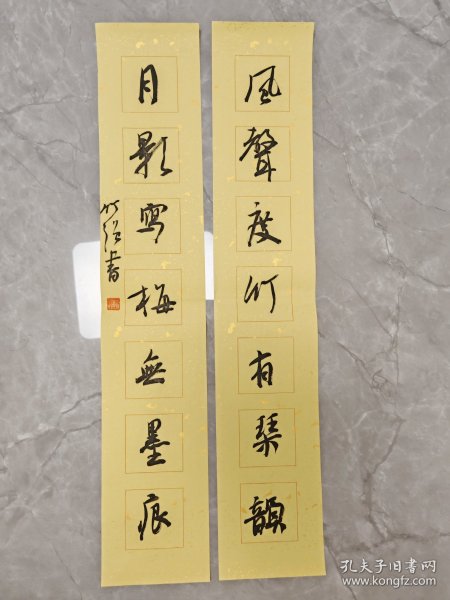 風聲度竹有琴韻
月影寫梅無墨痕
孔夫子旧书网
www.kongfz.com